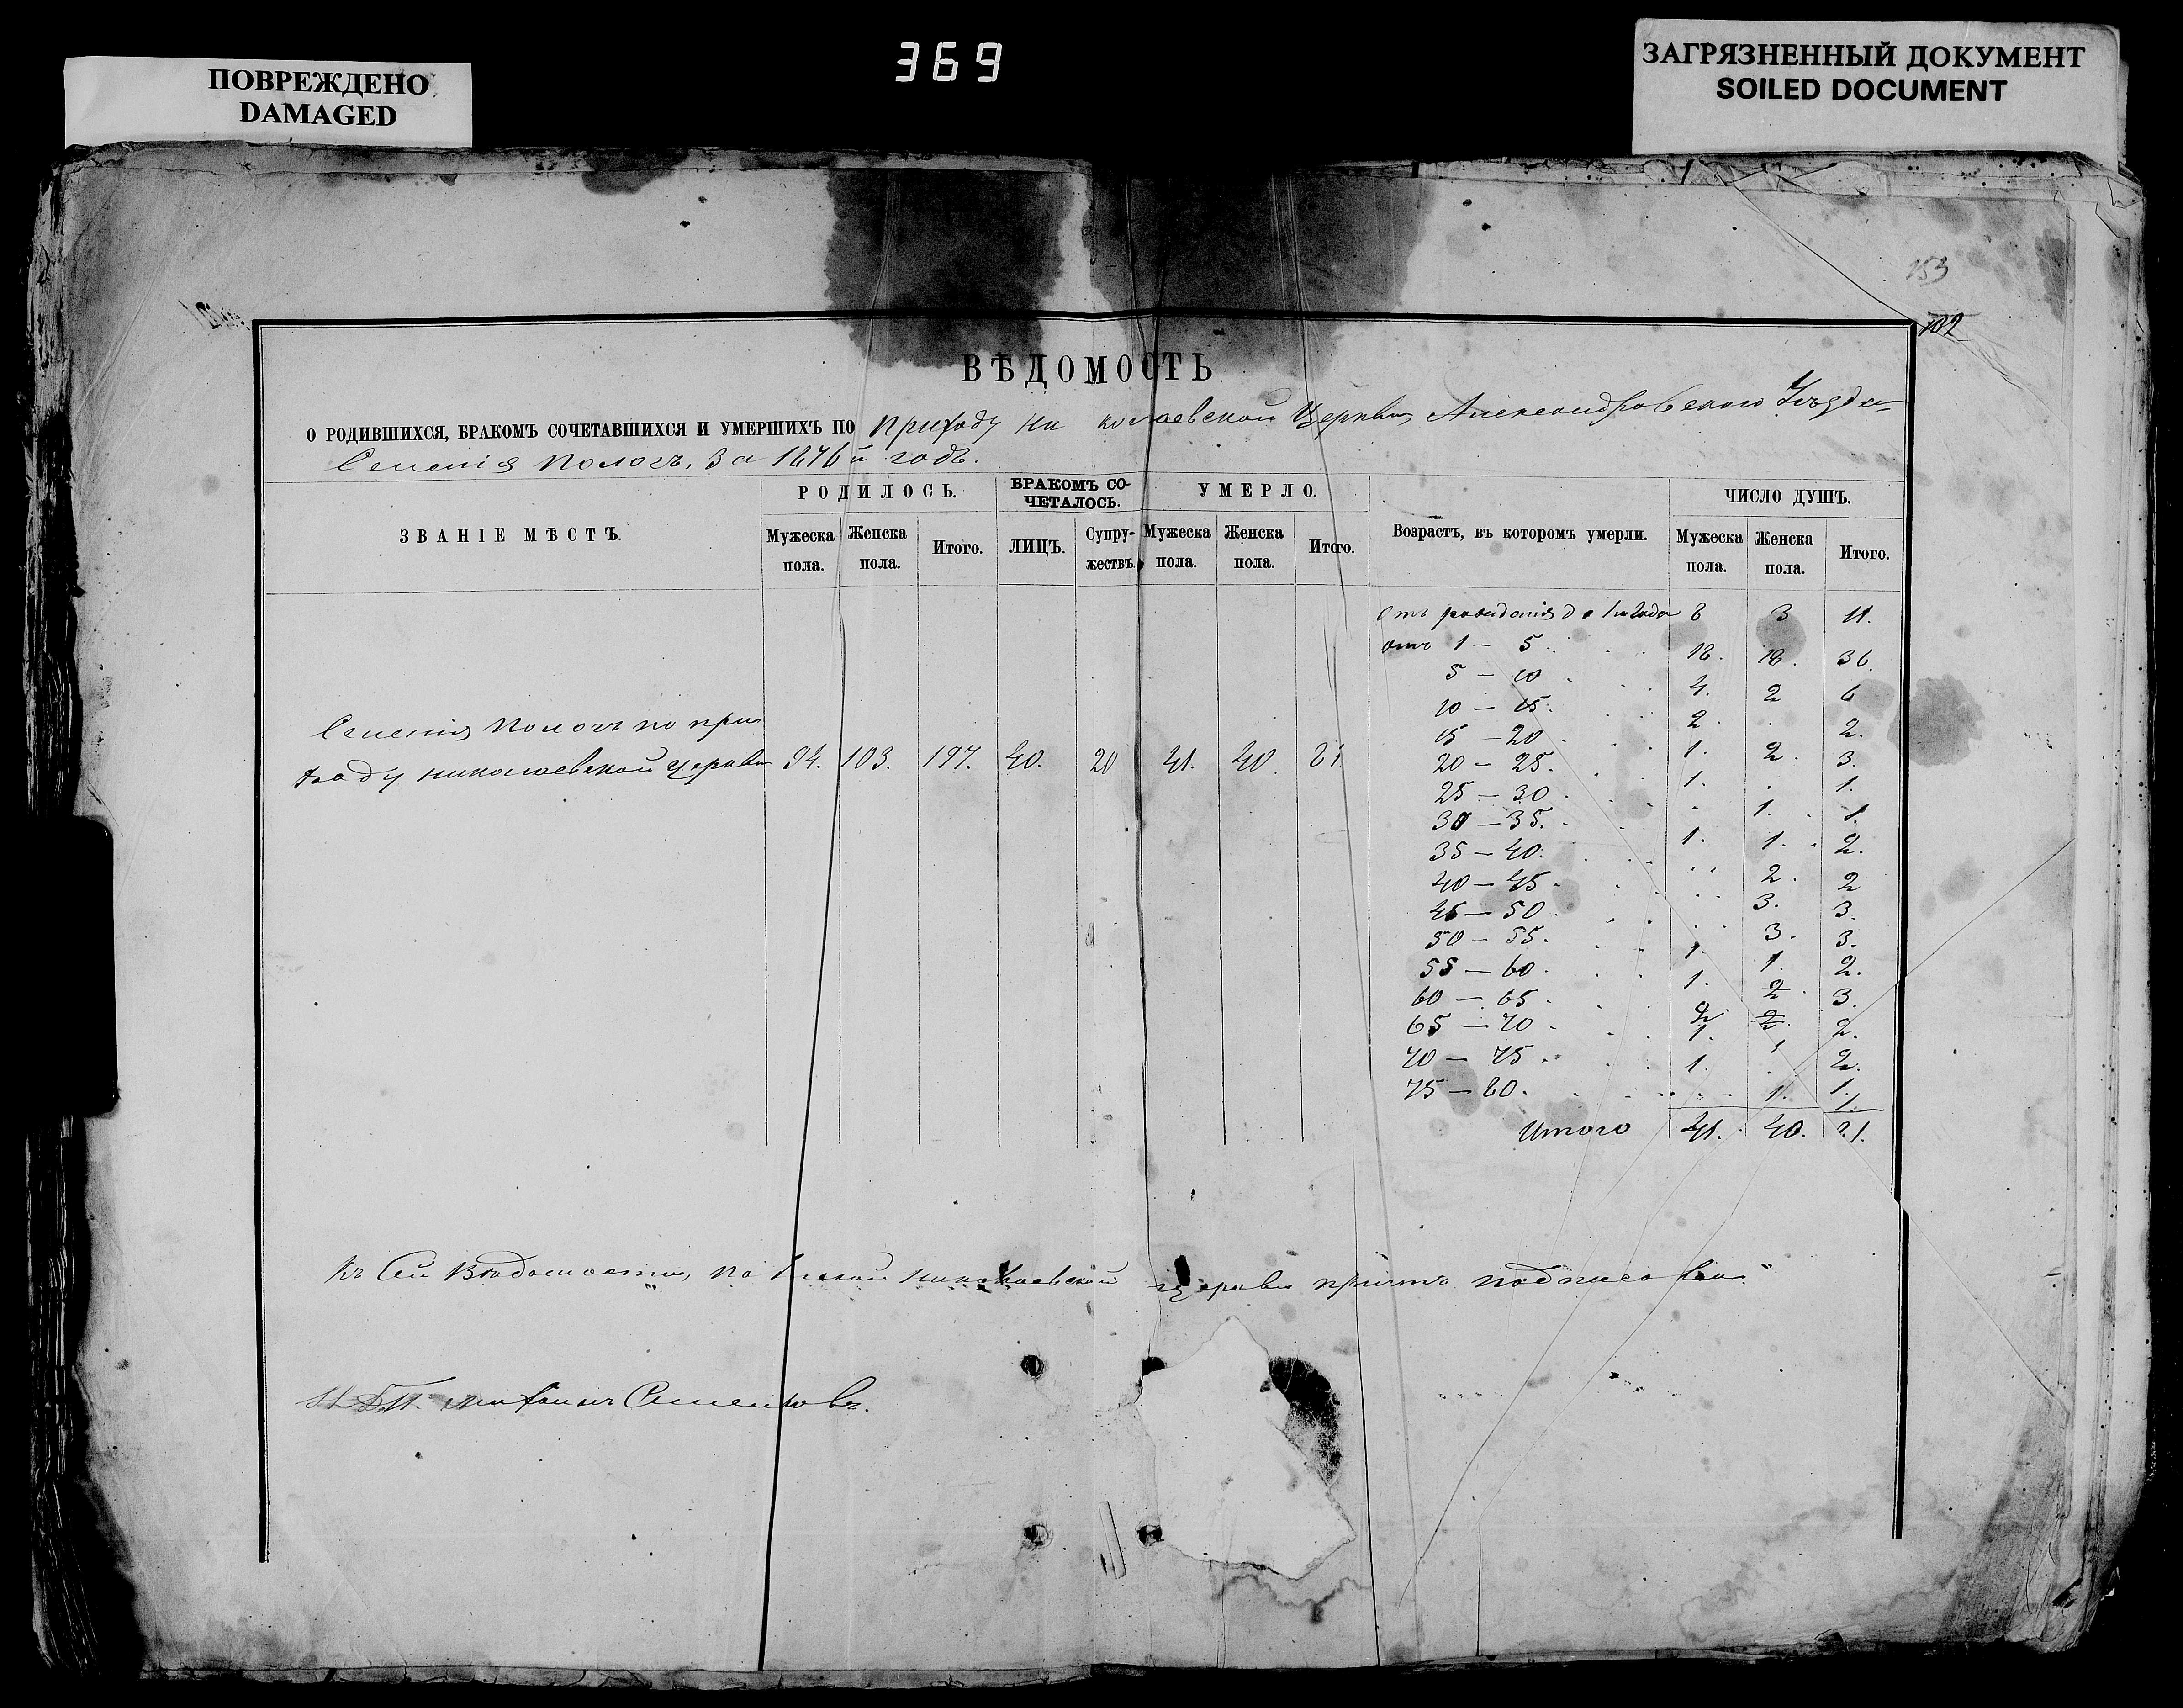 ПОВРЕЖДЕНО
DAMAGED
369
ЗАГРЯЗНЕННЫЙ ДОКУМЕНТ
SOILED DOCUMENT
153
102
ВѢДОМОСТЬ
О РОДИВШИХСЯ, БРАКОМЪ СОЧЕТАВШИХСЯ И УМЕРШИХЪ ПО приходу Николаевской Церкви, Александровскаго Уѣзда
Селенія Пологъ, За 1876й годъ.
ЗВАНІЕ МѢСТЪ.
РОДИЛОСЬ.
БРАКОМЪ СО-
ЧЕТАЛОСЬ.
УМЕРЛО.
Возрастъ, въ которомъ умерли.
ЧИСЛО ДУШЪ.
Мужеска пола. Женска пола. Итого. ЛИЦЪ. Супру-жествъ. Мужеска пола. Женска пола. Итого. Мужеска пола. Женска пола. Итого.
Селенія Пологъ по при
ходу николаевской церкви 94. 103. 197. 40. 20 41. 40. 81.
Отъ рожденія до 1го года 8 3 11.
отъ 1 — 5. 18. 18. 36.
5 — 10 4. 2 6
10 — 15. 2. . 2.
15 — 20 1. 2. 3.
20 — 25. 1. . 1.
25 — 30 . 1. 1.
30 — 35. 1. 1. 2.
35 — 40. . . 2. 2
40 — 45. . . 3. 3.
45 — 50. . . 3. 3.
50 — 55. 1. 1. 2.
55 — 60. 1. 2. 3.
60 — 65. 2.
65 — 70. 1. 1 2.
70 — 75. 1. . 1.
75 — 80. . . 1. 1.
Итого 41. 40. 81.
Къ Сей Вѣдомости, Николаевской церкви причтъ подписовка